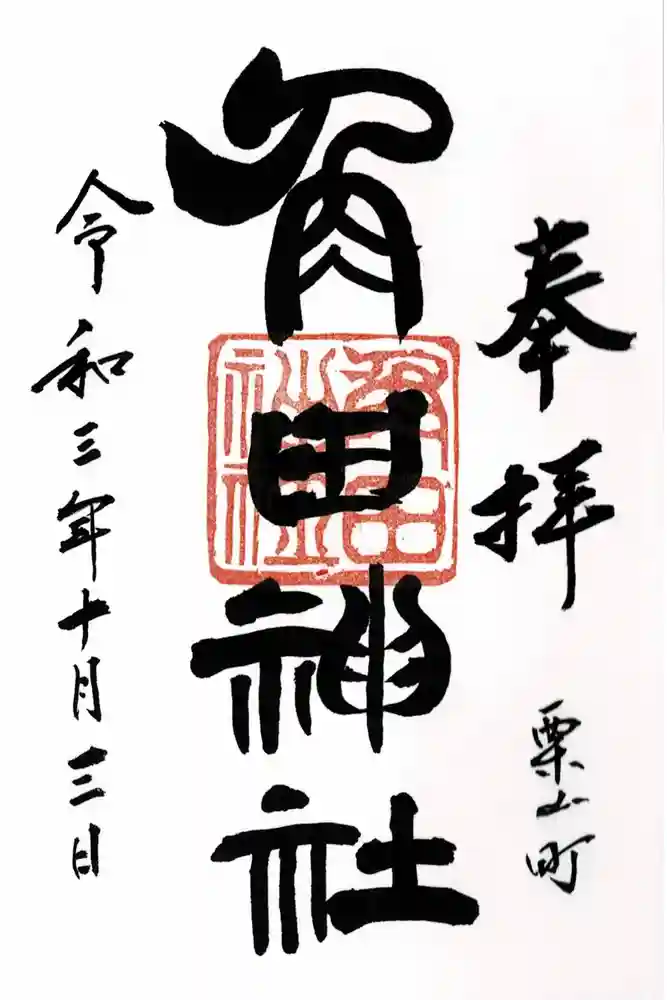 奉拝
栗山町
角田神社
角田
神社
令和三年十月三日